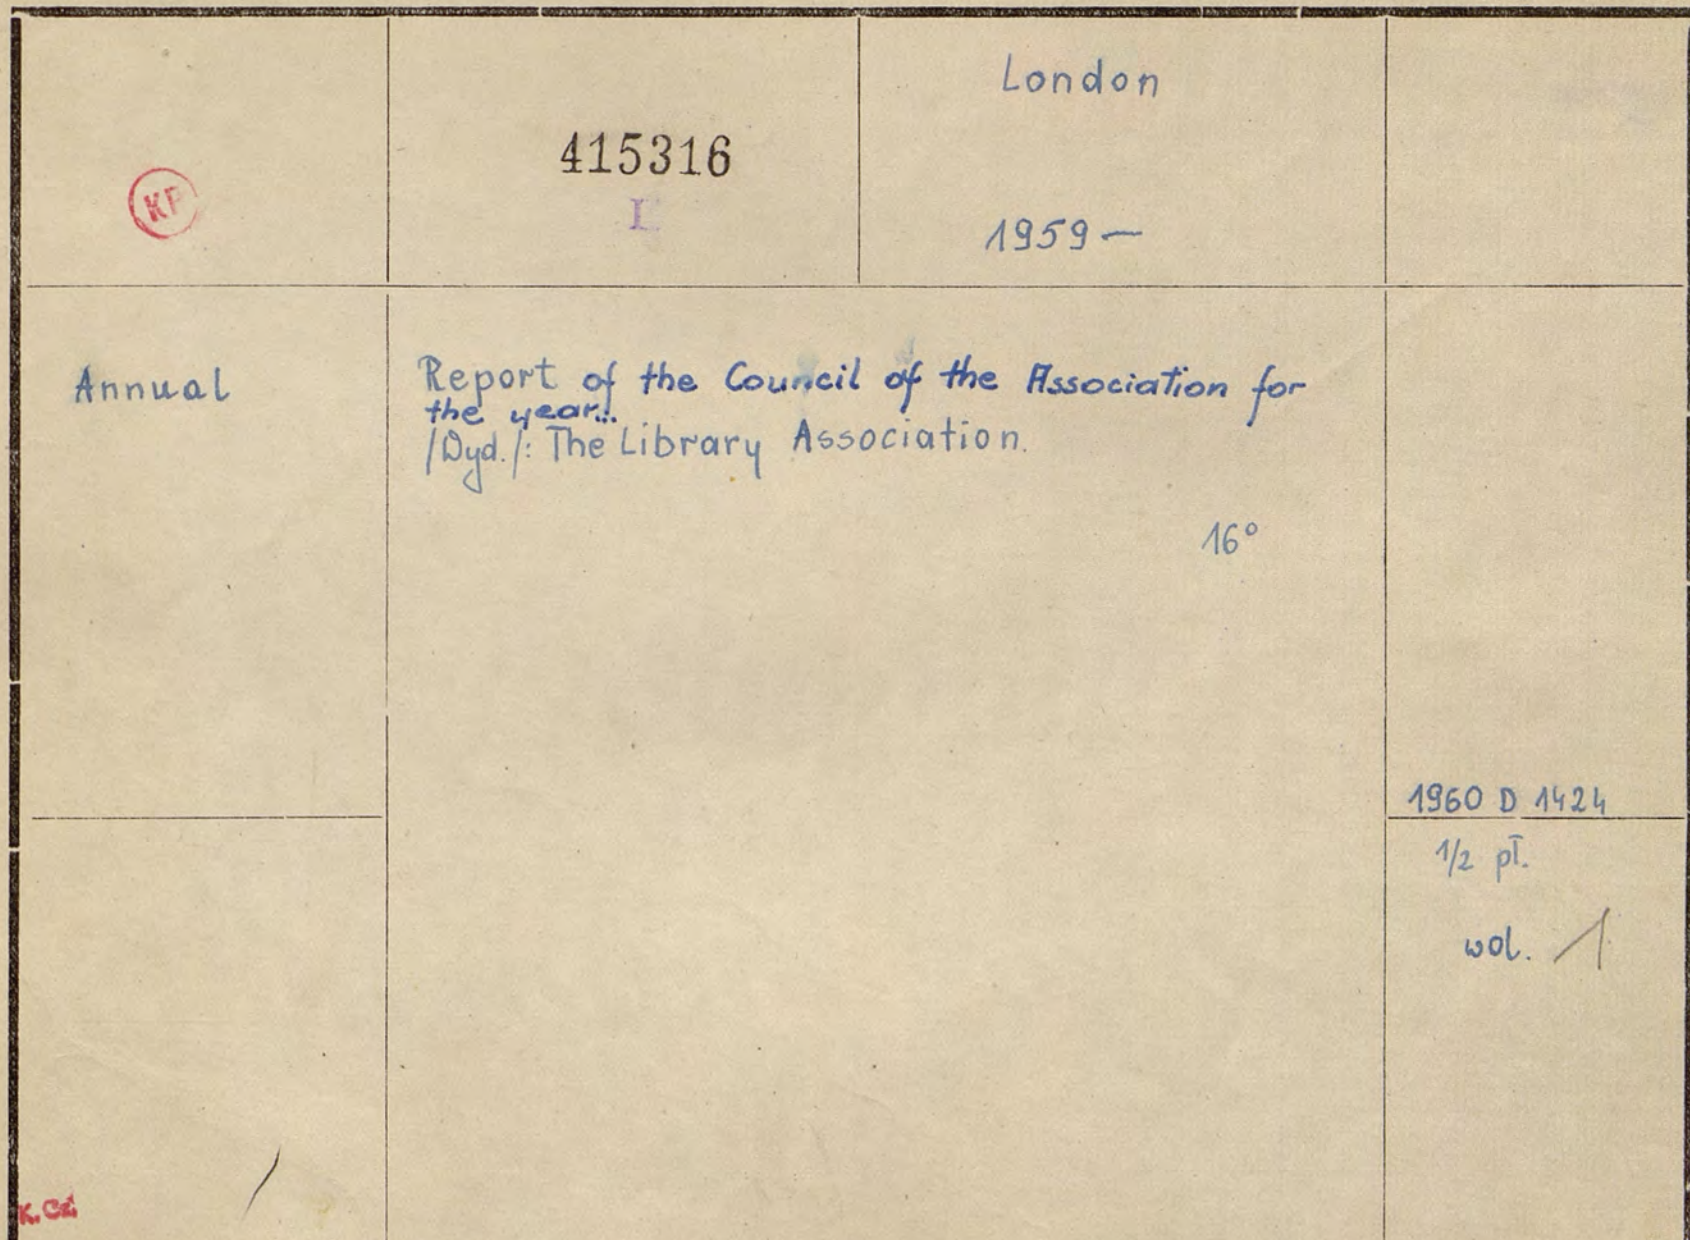 London
415316
KP
I
1959 —
Annual
Report of the Council of the Association for
the year...
/Wyd./: The Library Association.
16°
1960 D 1424
1/2 pł.
wol. 1
K. Cz.